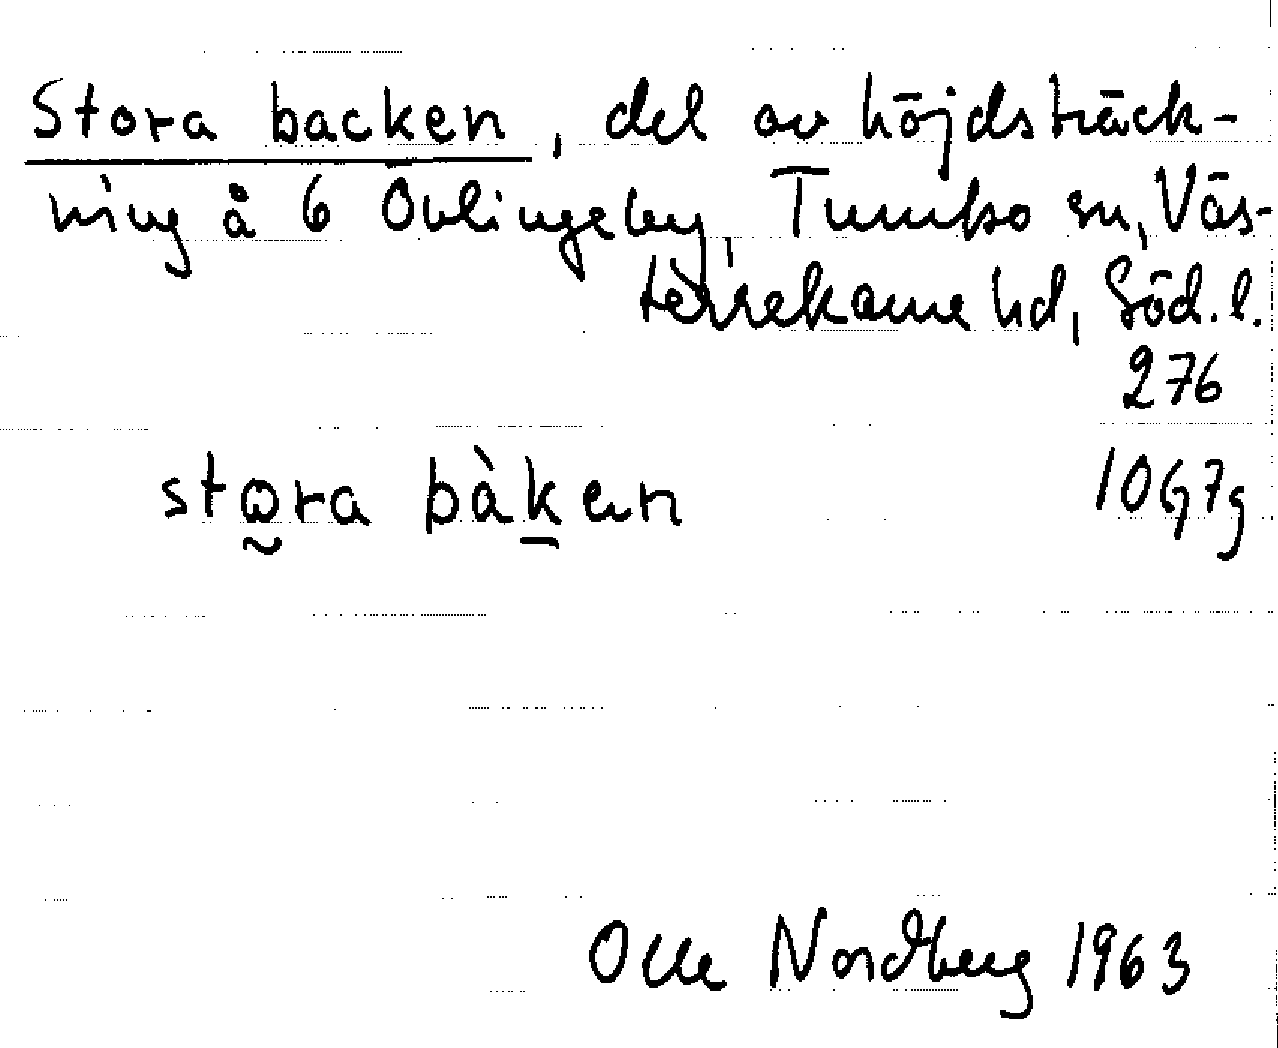 Stora backen, del av höjdsträck-
ning å 6 Övlingeby, Tumbo sn, Väs-
terrekarne hd, Söd. l.
276
stora bàken 10G7g
Olle Nordberg 1963